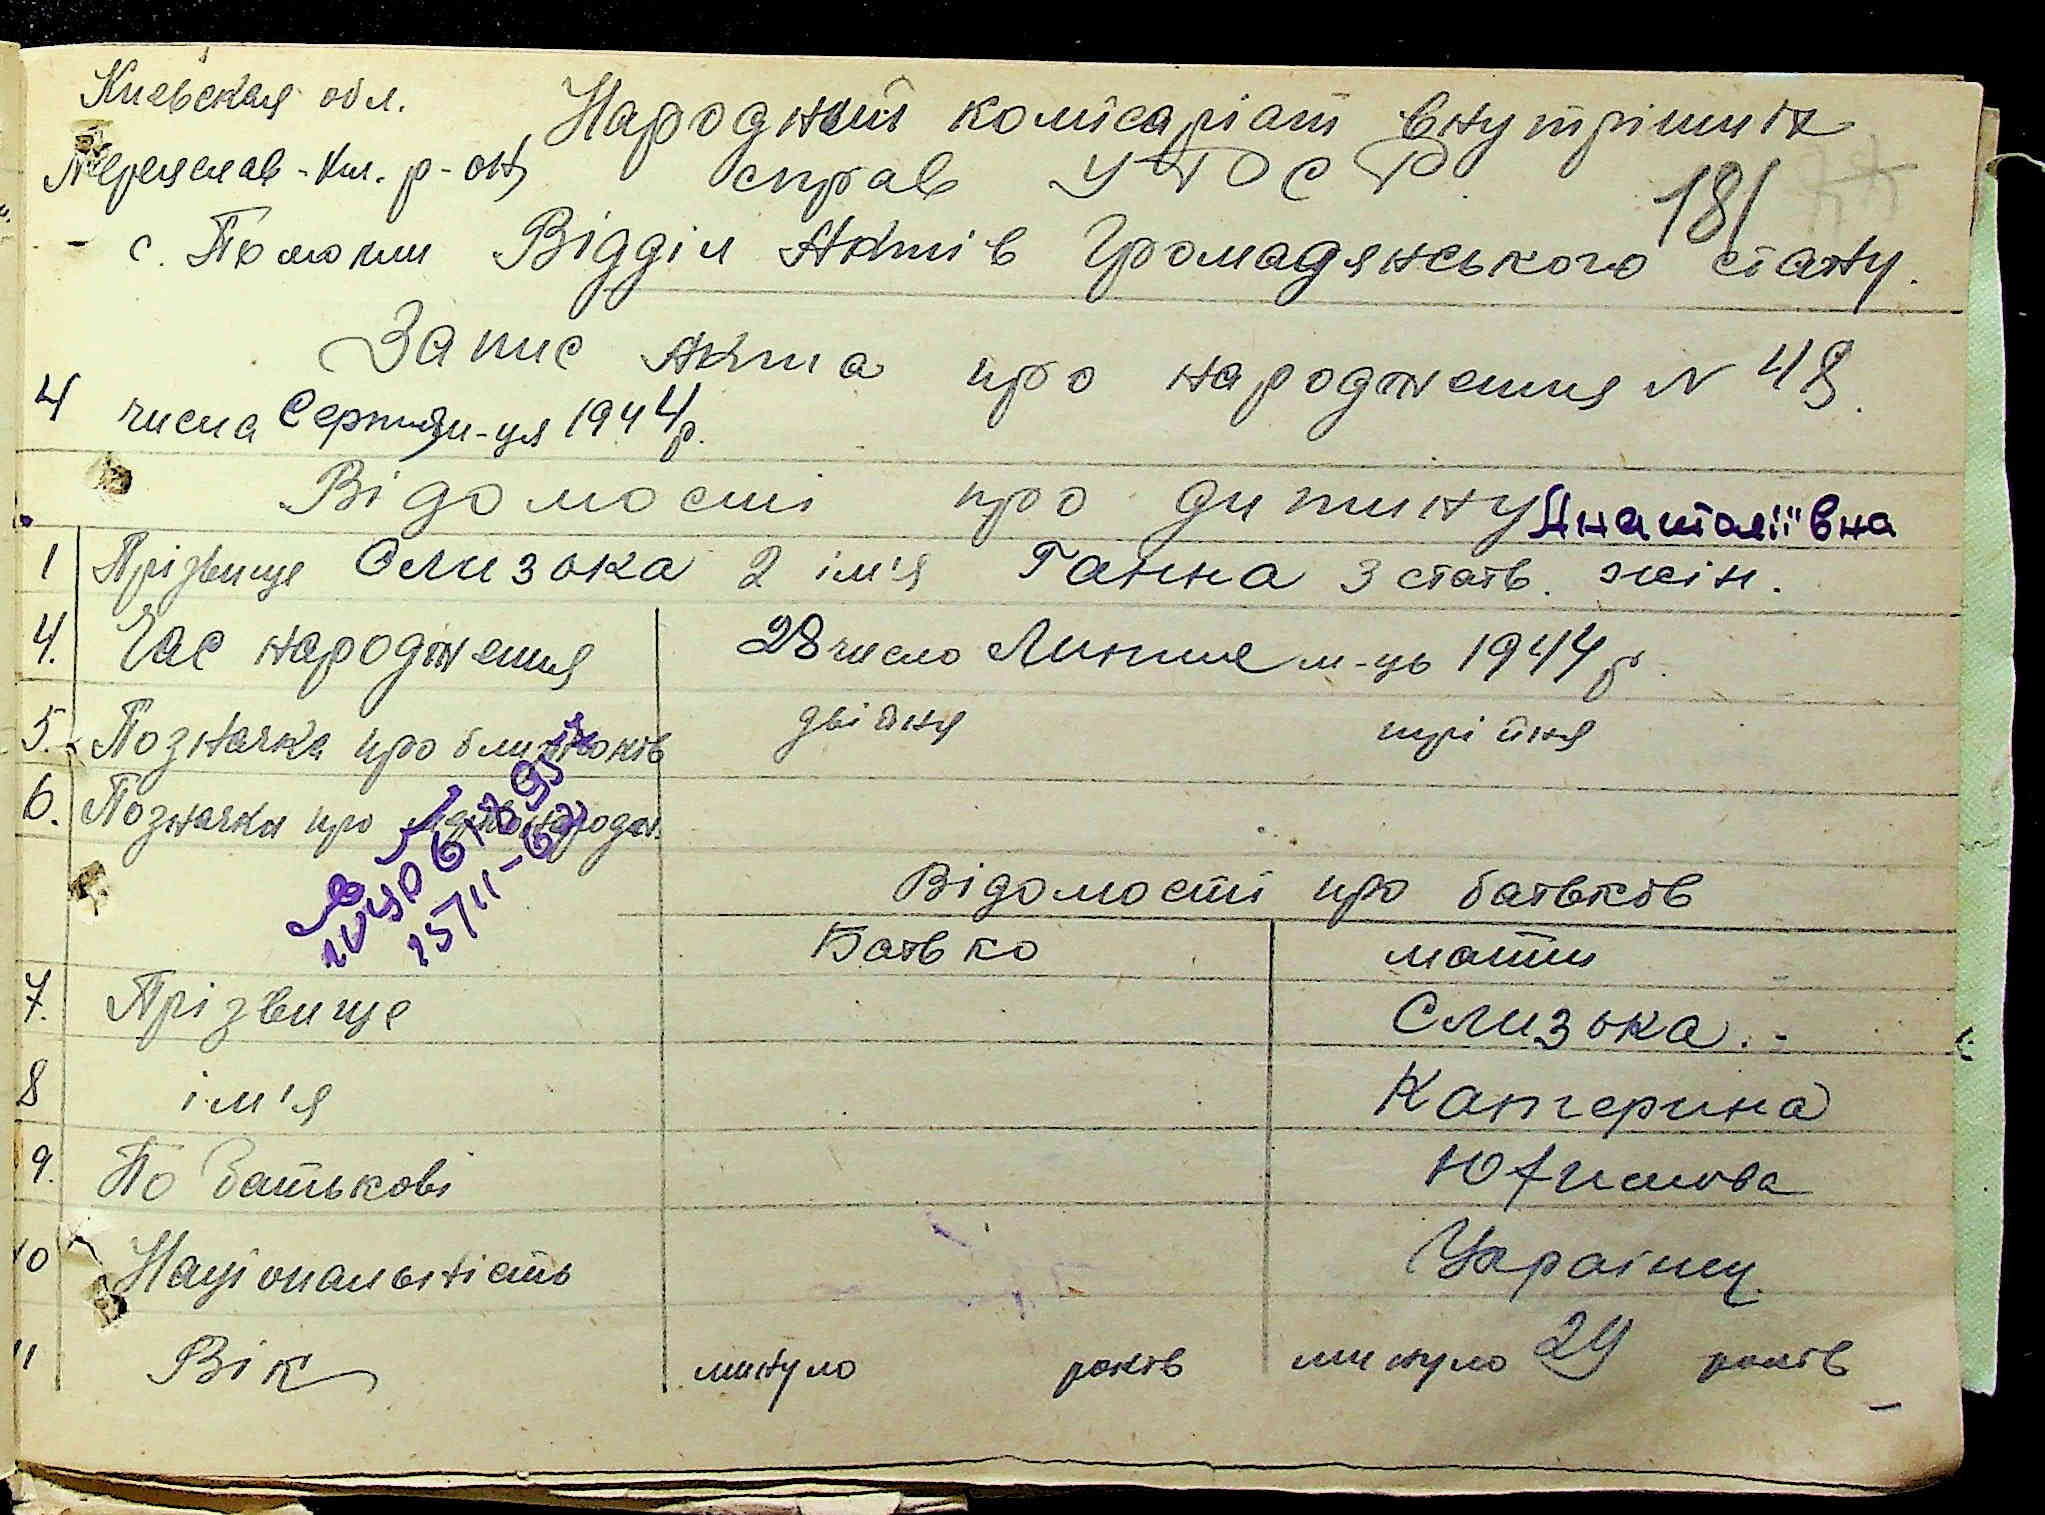 Киевская обл. Народний комісаріат внутрішніх
Переяслав-Хм. р-он, справ УРСР
181
с. Помокли Відділ Актів Громадянського стану.
Запис Акта про народження N 48.
4 числа Серпня м-ця 1944 р.
Відомості про дитину Анатоліївна
1 Прізвище Слизька 2 ім'я Ганна 3 стать. жін.
4. Час народження 28 число Липня м-ць 1944 р.
5. Позначка про близнюків двійня трійня
6. Позначки про
15/II-62
Відомості про батьків
Батько мати
7. Прізвище Слизька.
8 ім'я Катерина
9. По батькові Юхимова
10 Національність Україн
11 Вік минуло років минуло 24 років